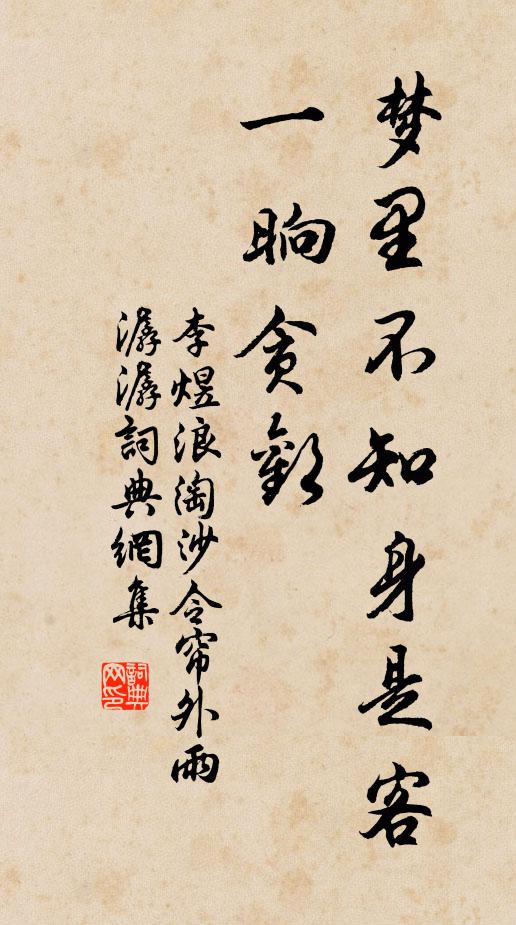 梦里不知身是客
一晌贪歡
李煜浪淘沙令帘外雨
潺潺詞典網集
詞典網印